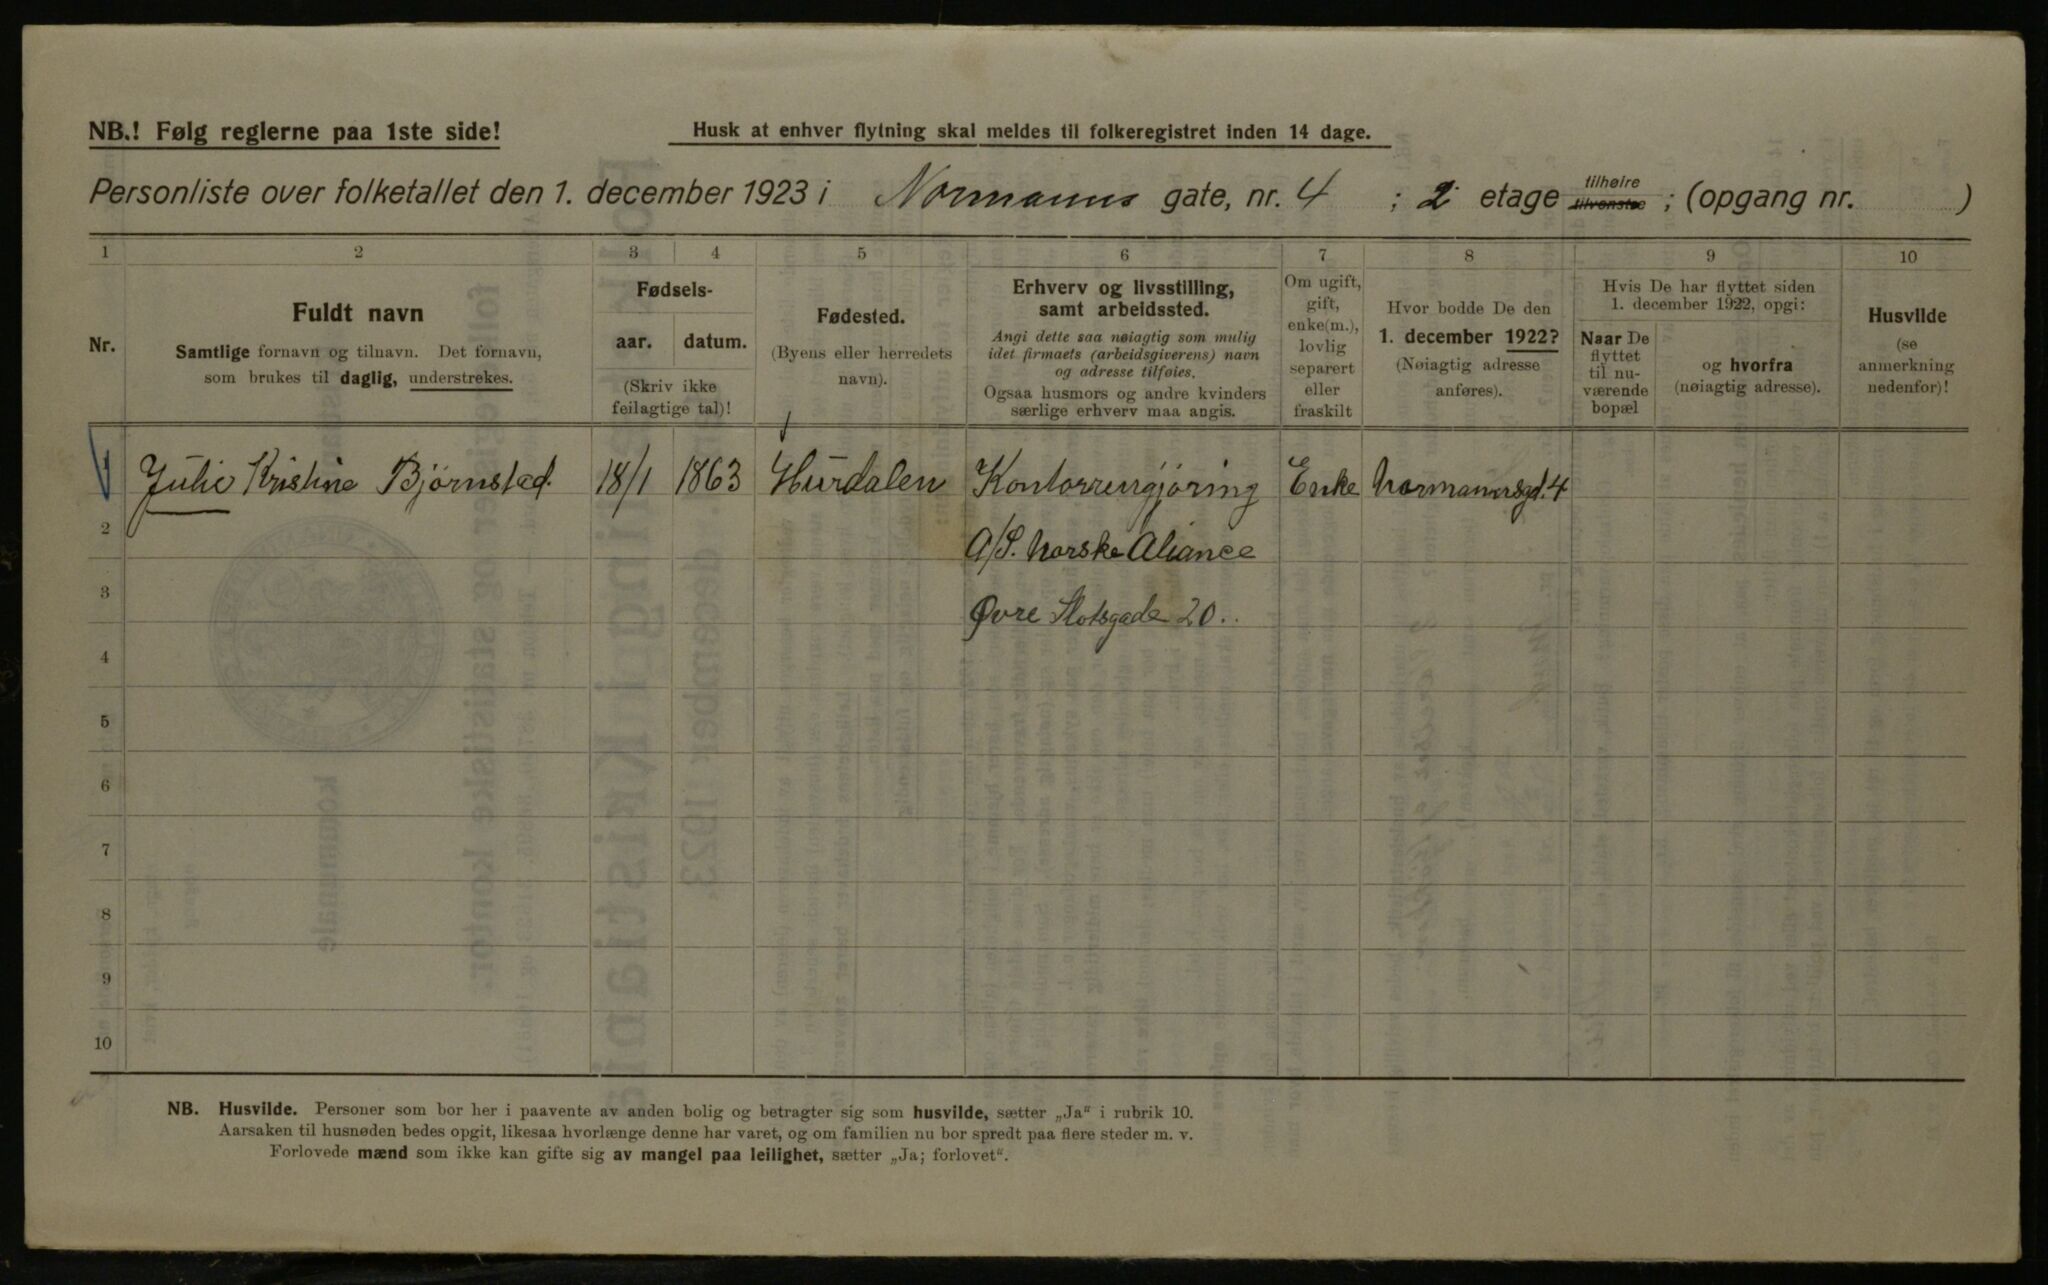 NB.! Følg reglerne paa 1ste side!
Husk at enhver flytning skal meldes til folkeregistret inden 14 dage.
Personliste over folketallet den 1. december 1923 i Normanns gate, nr. 4 ; 2 etage tilhøire tilvenstre ; (opgang nr. )
1 2 3 4 5 6 7 8 9 10
Nr.
Fuldt navn
Samtlige fornavn og tilnavn. Det fornavn,
som brukes til daglig, understrekes.
Fødsels-
aar. datum.
(Skriv ikke
feilagtige tal)!
Fødested.
(Byens eller herredets
navn).
Erhverv og livsstilling,
samt arbeidssted.
Angi dette saa nøiagtig som mulig
idet firmaets (arbeidsgiverens) navn
og adresse tilføies.
Ogsaa husmors og andre kvinders
særlige erhverv maa angis.
Om ugift,
gift,
enke(m.),
lovlig
separert
eller
fraskilt
Hvor bodde De den
1. december 1922?
(Nøiagtig adresse
anføres).
Hvis De har flyttet siden
1. december 1922, opgi:
Naar De
flyttet
til nu-
værende
bopæl
og hvorfra
(nøiagtig adresse).
Husvilde
(se
anmerkning
nedenfor)!
1 Julie Kristine Bjørnstad. 18/1 1863 Hurdalen Kontorrengjøring Enke Normannsgd. 4
2 A/S. Norske Aliance
3 Øvre Slotsgade 20..
4
5
6
7
8
9
10
NB. Husvilde. Personer som bor her i paavente av anden bolig og betragter sig som husvilde, sætter „Ja“ i rubrik 10.
Aarsaken til husnøden bedes opgit, likesaa hvorlænge denne har varet, og om familien nu bor spredt paa flere steder m. v.
Forlovede mænd som ikke kan gifte sig av mangel paa leilighet, sætter „Ja; forlovet“.